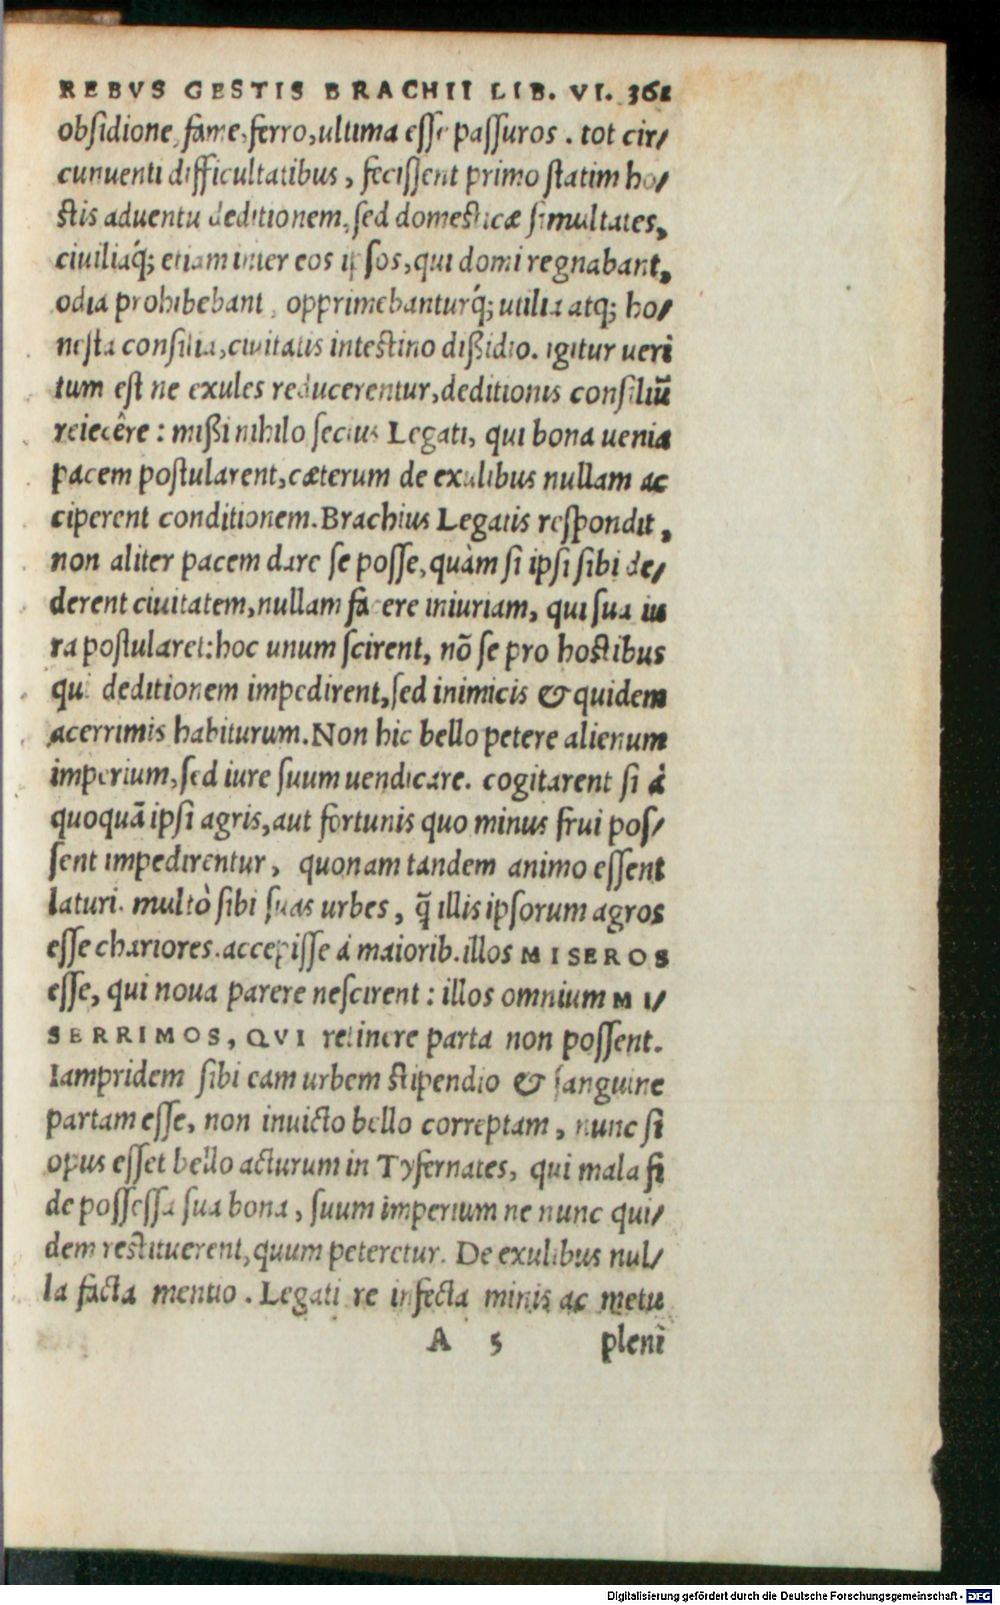 REBVS GESTIS BRACHII LIB. VI. 361
obsidione, fame, ferro, ultima esse passuros. tot cir/
cunuenti difficultatibus, fecissent primo statim ho/
stis aduentu deditionem, sed domesticæ simultates,
ciuiliaq́; etiam inter eos ipsos, qui domi regnabant,
odia prohibebant, opprimebanturq́; utilia atq; ho/
nesta consilia, ciuitatis intestino dißidio. igitur ueri
tum est ne exules reducerentur, deditionis consiliũ
reiecêre: mißi nihilo secius Legati, qui bona uenia
pacem postularent, cæterum de exulibus nullam ac
ciperent conditionem. Brachius Legatis respondit,
non aliter pacem dare se posse, quàm si ipsi sibi de/
derent ciuitatem, nullam facere iniuriam, qui sua iu
ra postularet: hoc unum scirent, nõ se pro hostibus
qui deditionem impedirent, sed inimicis & quidem
acerrimis habiturum. Non hic bello petere alienum
imperium, sed iure suum uendicare. cogitarent si à
quoquã ipsi agris, aut fortunis quo minus frui pos/
sent impedirentur, quonam tandem animo essent
laturi. multò sibi suas urbes, q̃ illis ipsorum agros
esse chariores. accepisse à maiorib. illos MISEROS
esse, qui noua parere nescirent: illos omnium MI/
SERRIMOS, QVI retinere parta non possent.
Iampridem sibi eam urbem stipendio & sanguine
partam esse, non inuicto bello correptam, nunc si
opus esset bello acturum in Tyfernates, qui mala fi
de possessa sua bona, suum imperium ne nunc qui/
dem restituerent, quum peteretur. De exulibus nul/
la facta mentio. Legati re infecta minis ac metu
A 5 pleni
Digitalisierung gefördert durch die Deutsche Forschungsgemeinschaft - DFG